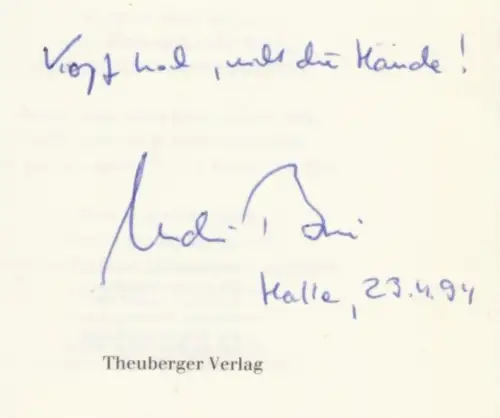 Kopf hoch, nicht die Hände!
Halle, 23.4.94
Theuberger Verlag